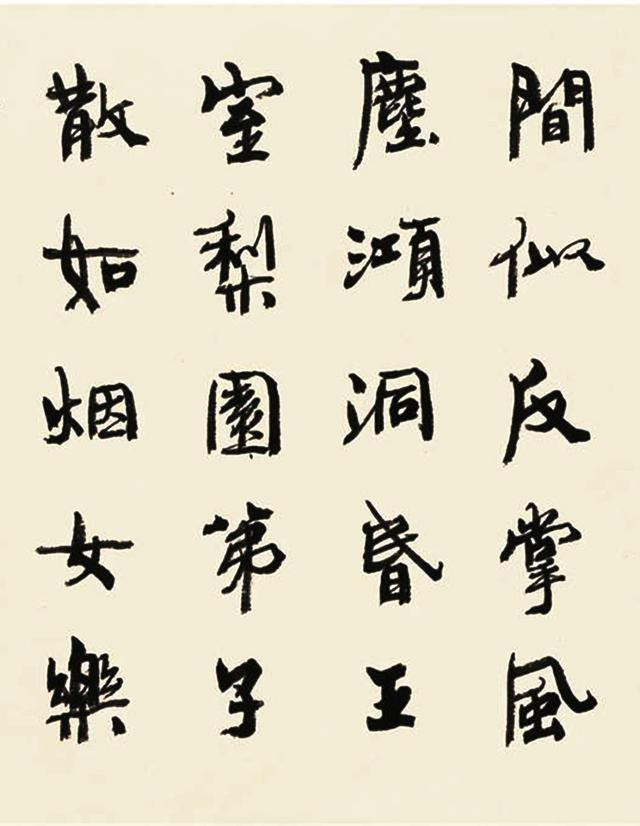 間似反掌風
塵澒洞昏王
室梨園弟子
散如烟女樂